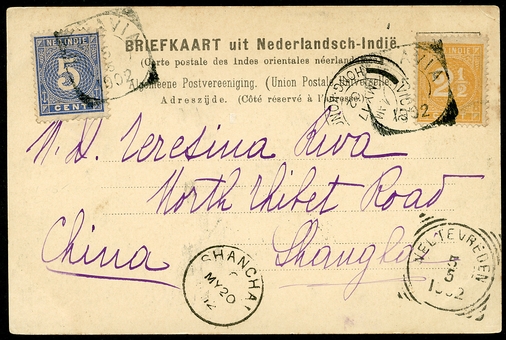 BRIEFKAART uit Nederlandsch-Indië.
(Carte postale des Indes orientales néerlandaises.)
Algemeene Postvereeniging. (Union Postale Universelle.)
Adreszijde. (Côté réservé à l'adresse.)
NED. INDIE
5
CENT
INDIE
2½
1902
HONG KONG
VICTORIA
North Thibet Road
China Shanghai
SHANGHAI
MY 20
02
WELTEVREDEN
5
5
1902